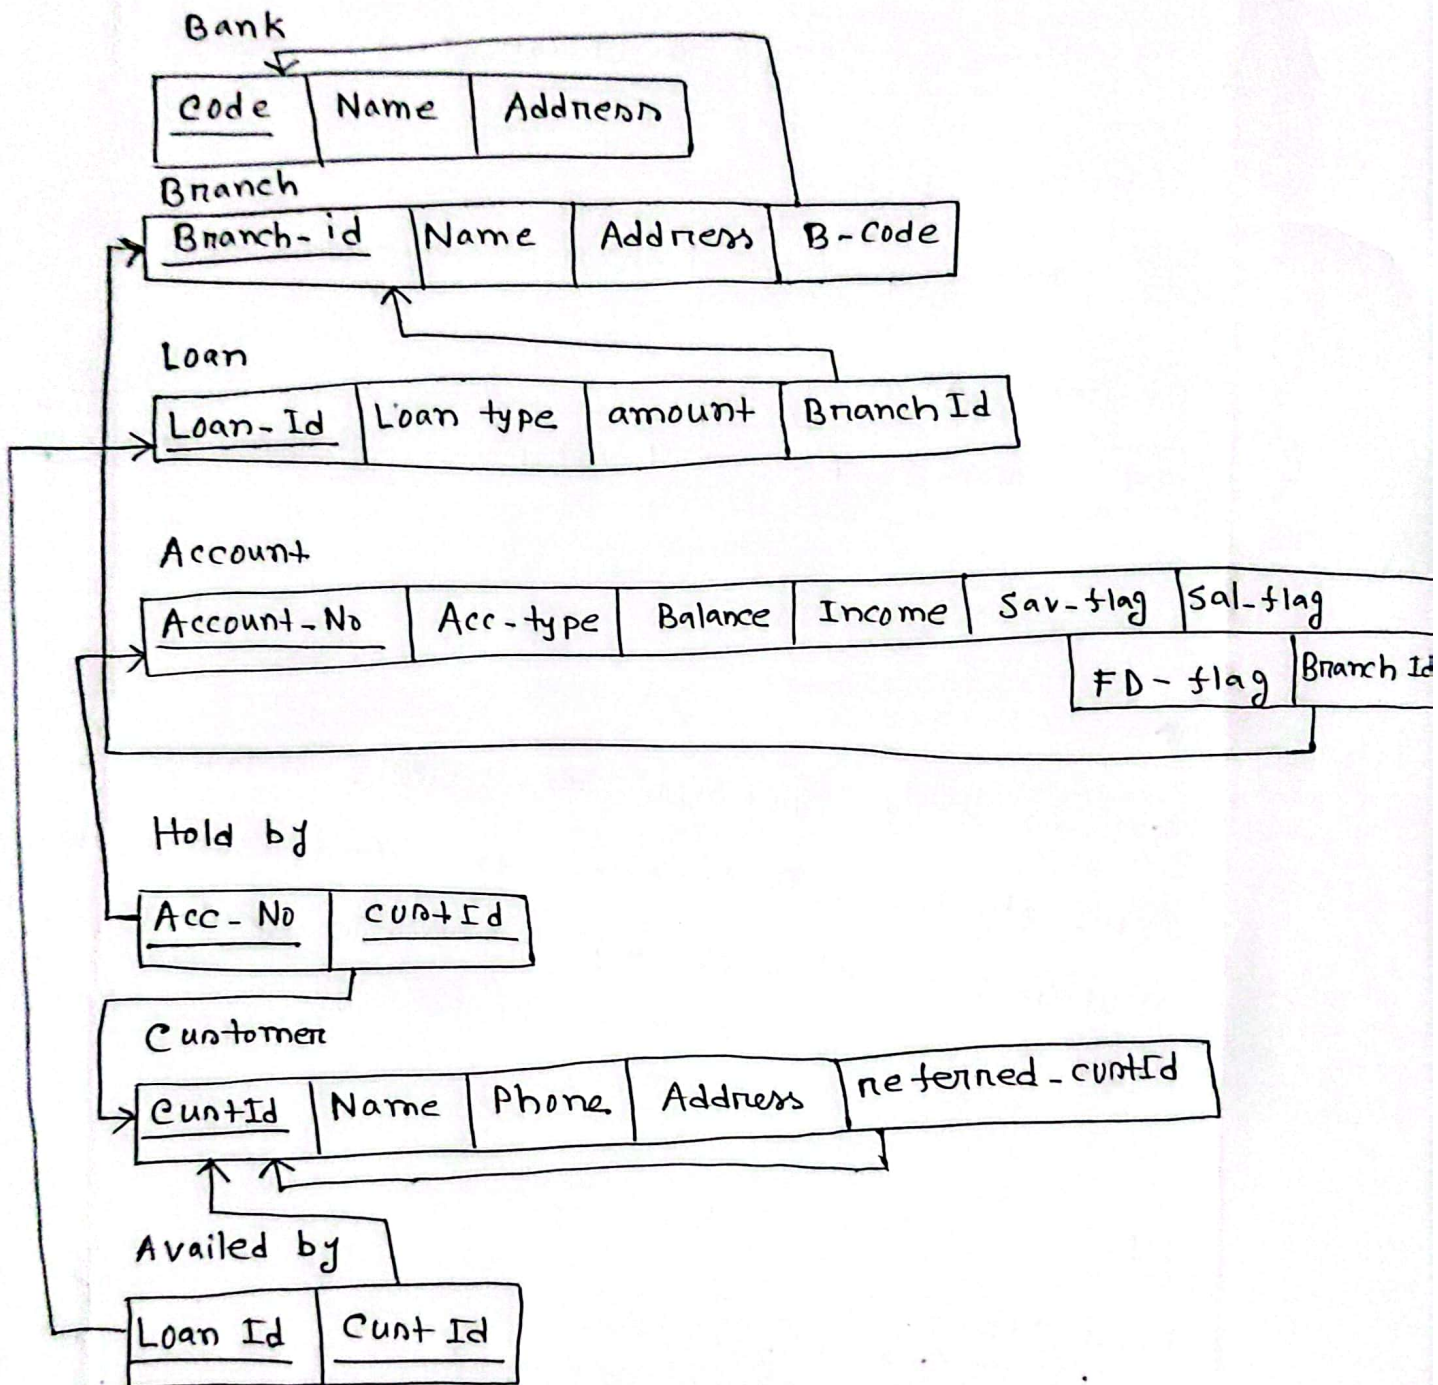 Bank
Code Name Address
Branch
Branch-id Name Address B-Code
Loan
Loan-Id Loan type amount Branch Id
Account
Account-No Acc-type Balance Income Sav-flag Sal-flag
FD-flag Branch Id
Hold by
Acc-No custId
Customer
CustId Name Phone Address referred-custId
Availed by
Loan Id Cust Id